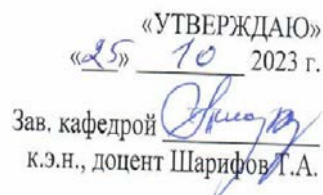 «УТВЕРЖДАЮ»
«25» 10 2023 г.
Зав. кафедрой
к.э.н., доцент Шарифов Т.А.